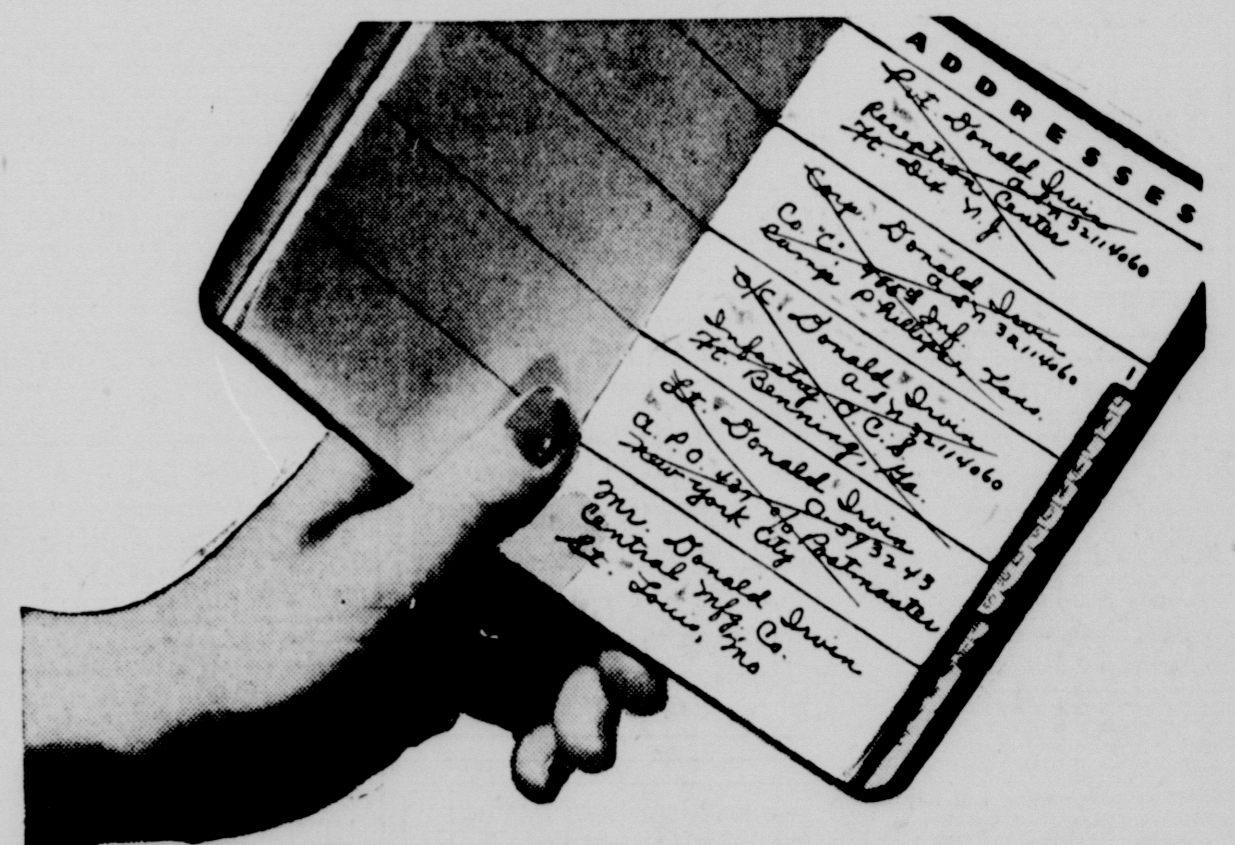 ADDRESSES
Pvt. Donald Irwin
ASN 32114060
Reception Center
Ft. Dix N.J.
Corp. Donald Irwin
ASN 32114060
Co. "C" Inf.
Camp Phillips, Kans.
O/C. Donald Irwin
ASN 32114060
Infantry O.C.S.
Ft. Benning, Ga.
Lt. Donald Irwin
O-593243
A.P.O. 427 c/o Postmaster
New York City
Mr. Donald Irwin
Central Mfg. Co.
St. Louis, Mo
I